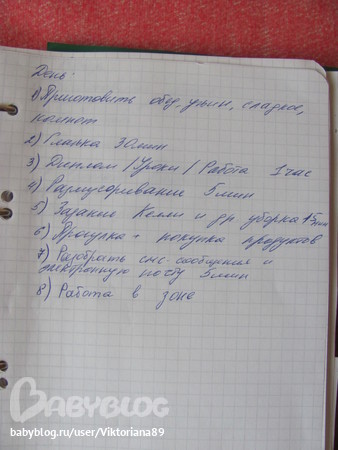 День:
1) Приготовить обед-ужин, сладкое,
компот
2) Глажка 30 мин
3) Диплом / Уроки / Работа 1 час
4) Размусоривание 5 мин
5) Задание Келли и др уборка 15 мин
6) Прогулка + покупка продуктов
7) Разобрать смс-сообщения и
электронную почту 5 мин
8) Работа в зоне
BABYBLOG
babyblog.ru/user/Viktoriana89